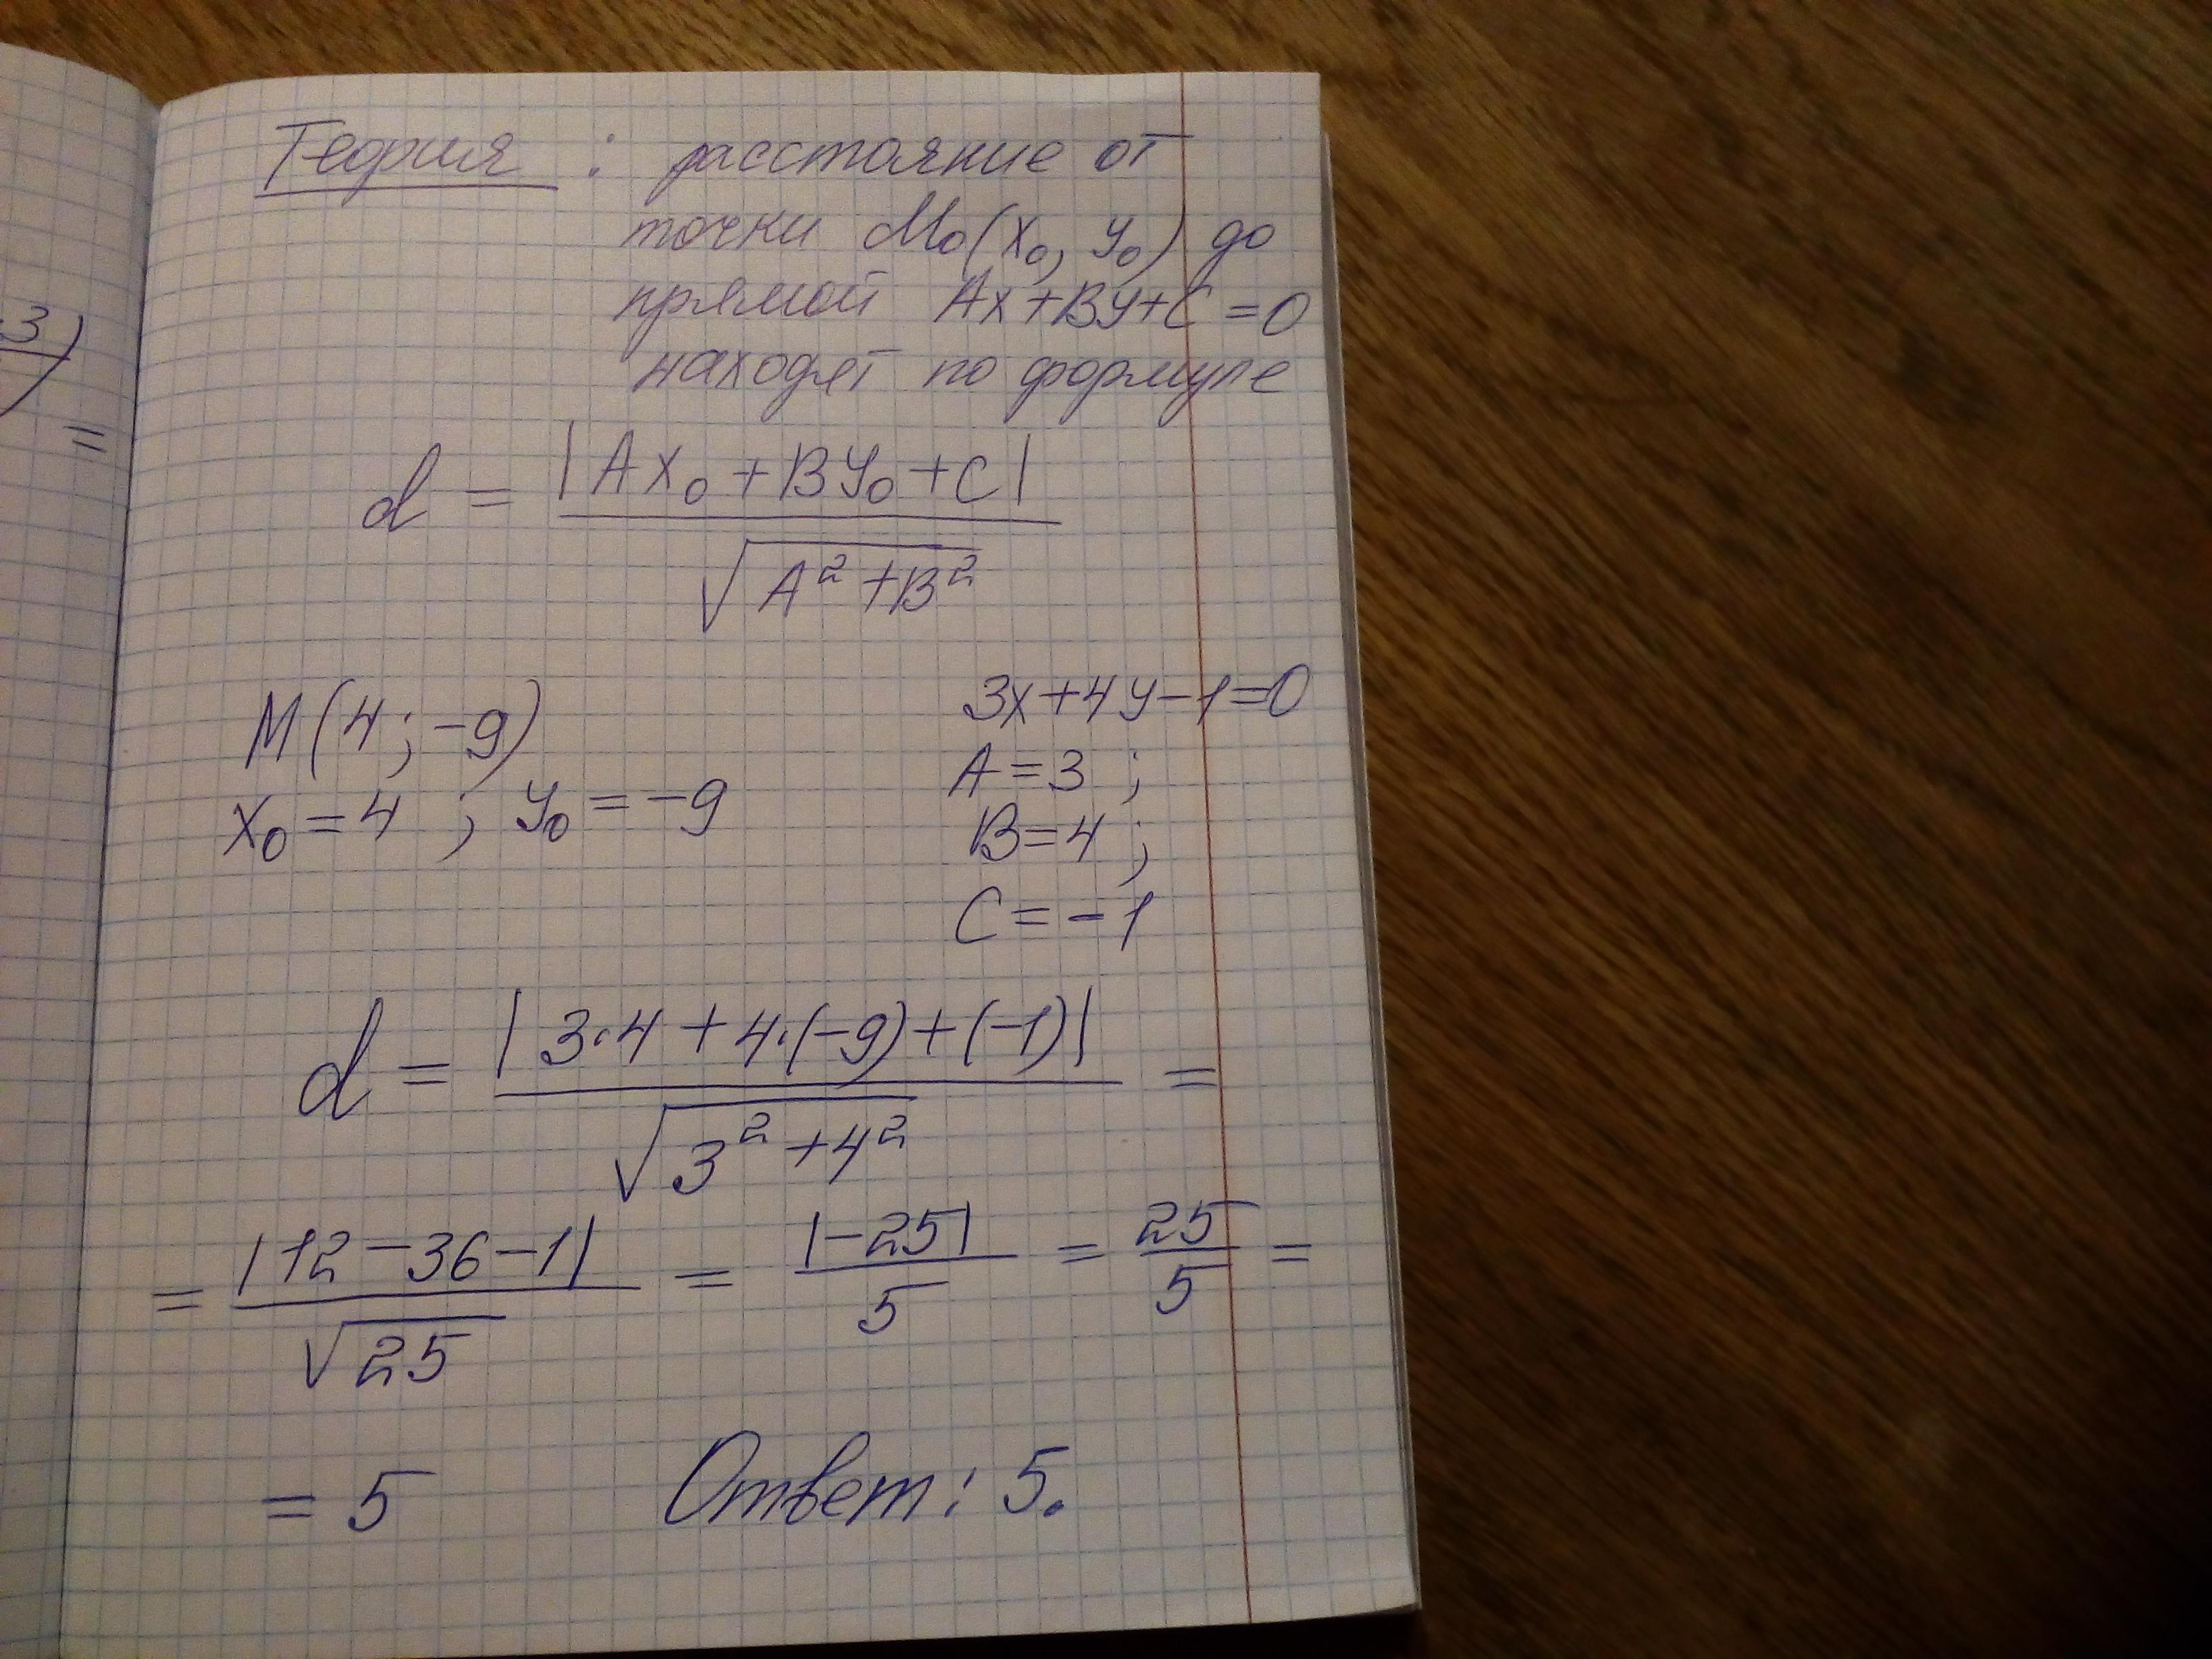 3)
=
Теория : расстояние от
точки M₀(x₀, y₀) до
прямой Ax+By+C=0
находят по формуле
d = |Ax₀ + By₀ + C| / √(A² + B²)
M(4; -9)
x₀ = 4 ; y₀ = -9
3x+4y-1=0
A=3 ;
B=4 ;
C=-1
d = |3·4 + 4·(-9) + (-1)| / √(3² + 4²) =
= |12 - 36 - 1| / √25 = |-25| / 5 = 25 / 5 =
= 5 Ответ: 5.